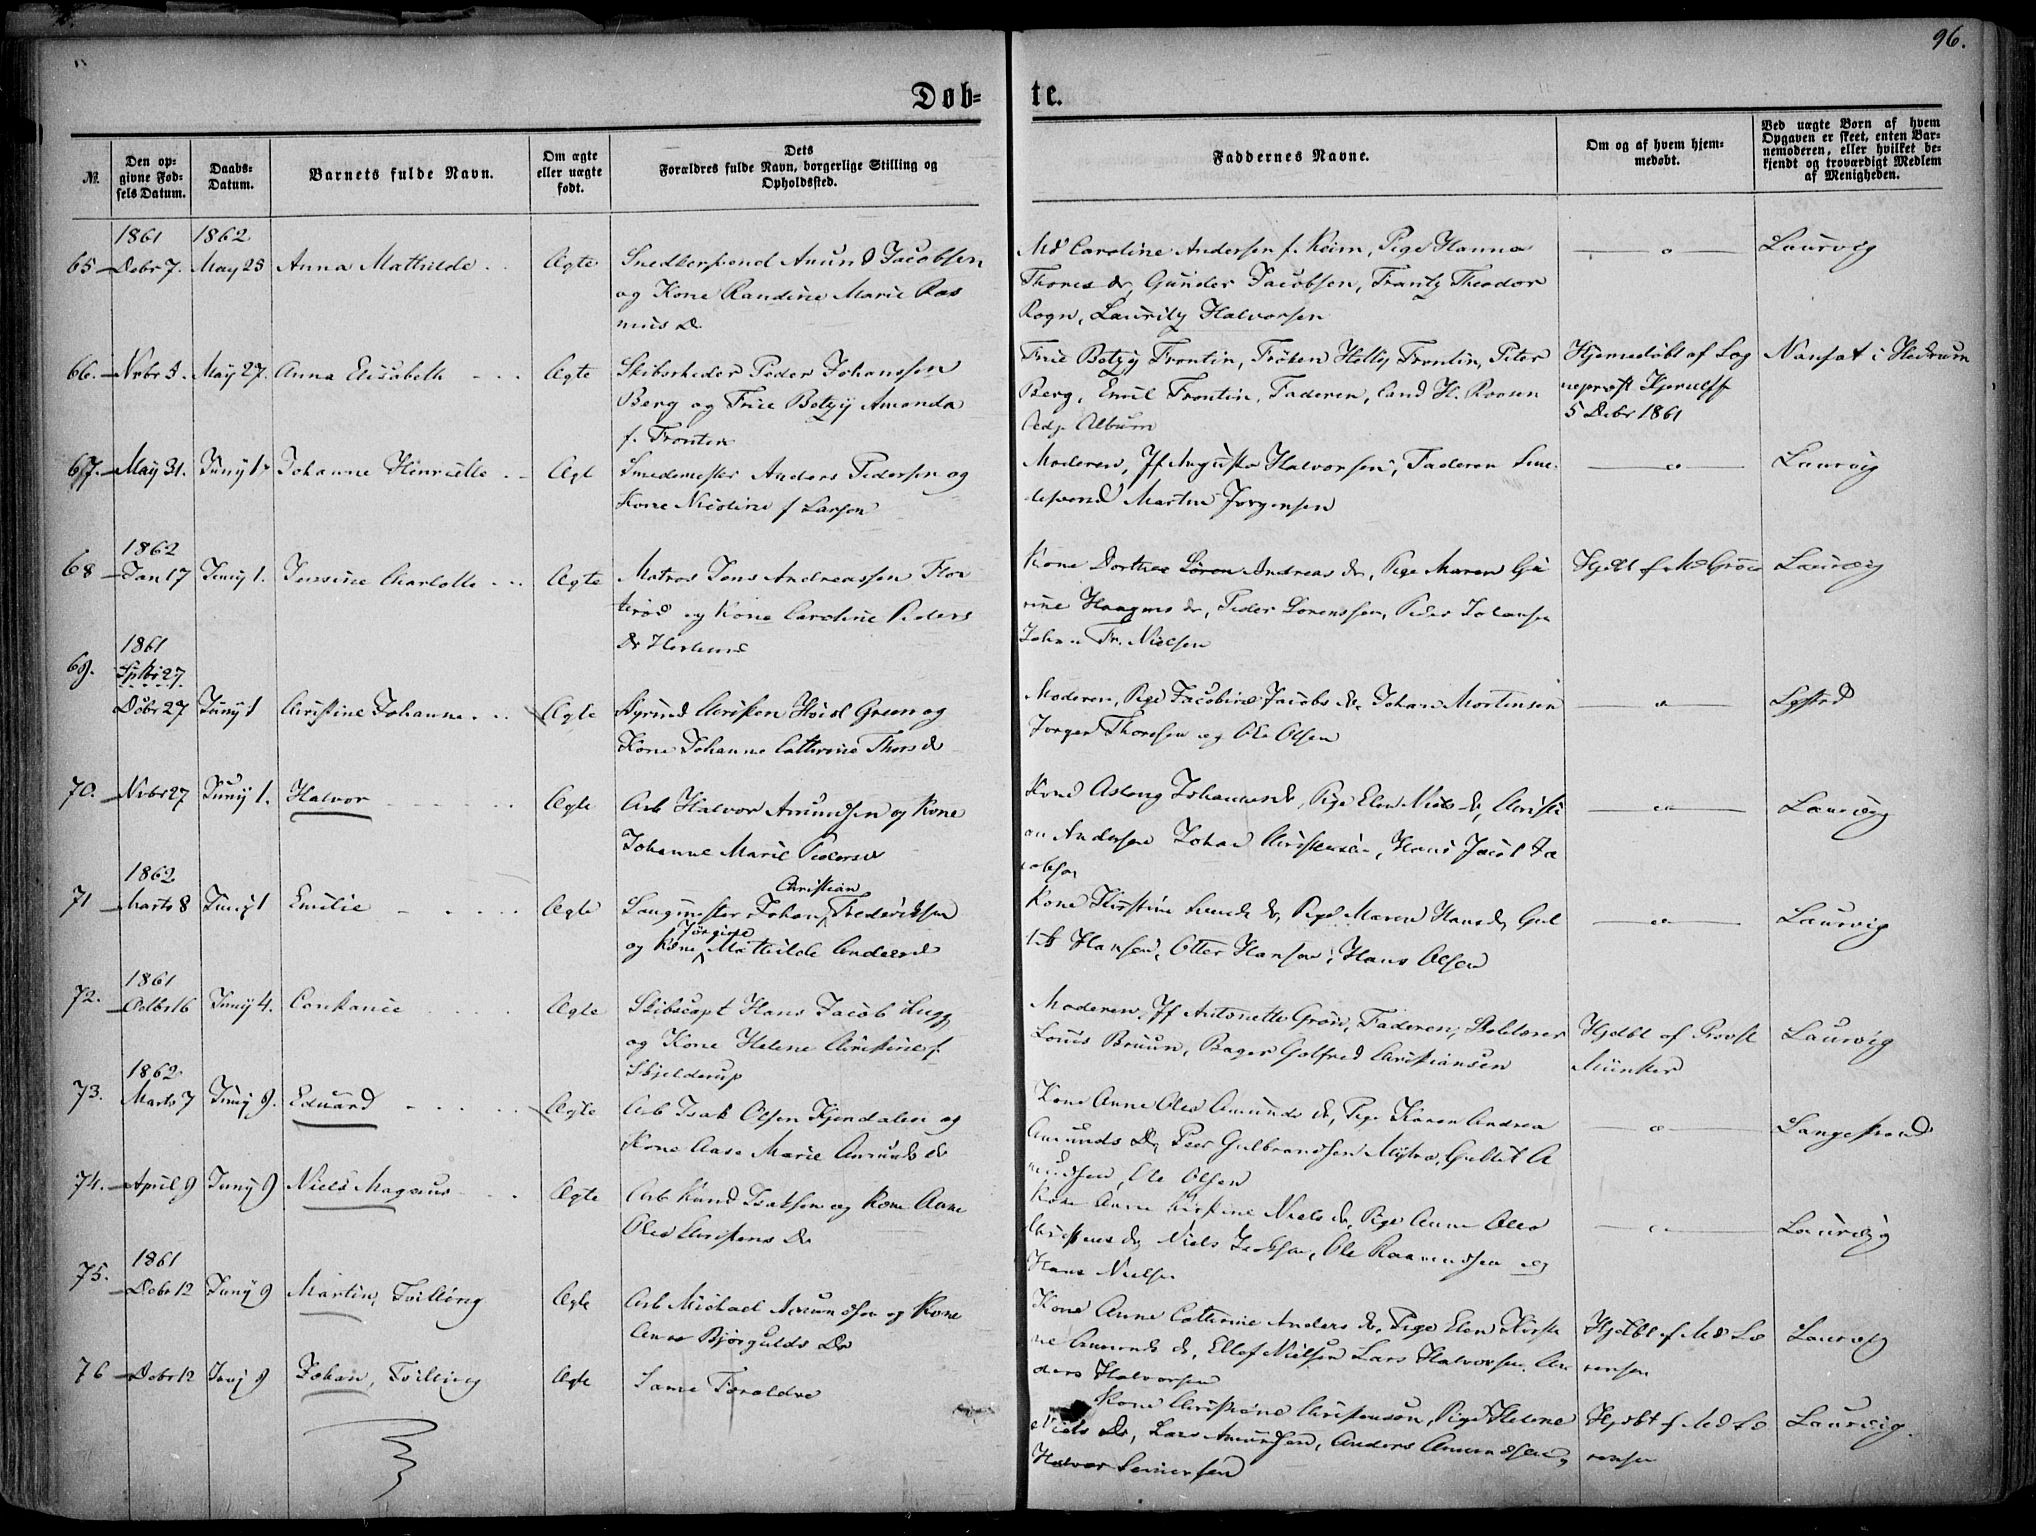 96.
Døb-
te.
№.
Den op-
givne Fød-
sels Datum.
Daabs-
Datum.
Barnets fulde Navn.
Om ægte
eller uægte
født.
Dets
Forældres fulde Navn, borgerlige Stilling og
Opholdssted.
Faddernes Navne.
Om og af hvem hjem-
medøbt.
Ved uægte Børn af hvem
Opgaven er skeet, enten Bar-
nemoderen, eller hvilket be-
kjendt og troværdigt Medlem
af Menigheden.
1861 1862
65 Debr 7. May 25 Anna Mathilde Ægte Snedkersvend Amund Jacobsen
og Kone Randine Marie Ras
mus D.
Md Caroline Andersen f. Keim, Pige Hanna
Thores dr, Gunder Jacobsen, Frantz Theodor
Rogn, Lauritz Halvorsen
Laurvig
66. Nvbr 3. May 27. Anna Elisabeth Ægte Skibsrheder Peder Johanssen
Berg og Frue Betzy Amanda
f. Frontin
Frue Betzy Frontin, Frøken Hetty Frontin, Peter
Berg, Emil Frontin, Faderen, Cand H. Roosen
Album
Hjemedøbt af Sog
neprest Hjerulff
5 Debr 1861
Nansæt i Hedrum
67. May 31. Juny 1. Johanne Henriette Ægte Smedemester Anders Pedersen og
Kone Nicoline f Larsen
Moderen, Jf Augusta Halvorsen, Faderen Sme
desvend Martin Jørgensen
Laurvig
1862
68 Jan 17 Juny 1. Jensine Charlotte Ægte Matros Jens Andreassen
og Kone Caroline Peders
Dr
Kone Dorthea Andreas dr, Pige Maren
rine Haagens dr, Peder Lorenssen, Peder Johansen
Johan Fr. Nielsen
Hjdbt af Md Grøn
Laurvig
1861
69. Sptbr 27
Debr 27 Juny 1 Christine Johanne Ægte Christen Høidal Green og
Kone Johanne Cathrine Thors dr
Moderen, Pige Jacobine Jacobs dr, Johan Mortensen
Jørgen Thoresen og Ole Olsen
70. Nvbr 27 Juny 1. Halvor Ægte Arb Halvor Amundsen og Kone
Johanne Marie Pedersd
Kone Aslaug Johannesdr, Pige Elen Niels dr, Christi
an Andersen Johan Christensen, Hans Jacob Ja
cobsen
Laurvig
1862
71 Marts 8 Juny 1 Emilie Ægte Laugmester Johan Christian Frederiksen
og Kone Jørgine Mathilde Andersd
Kone Kirstine Svends dr, Pige Maren Hansdr, Gul
lik Hansen, Otter Hansen, Hans Olsen
Laurvig
1861
72. Octbr 16 Juny 4. Constance Ægte Skibscapt Hans Jacob Bugge
og Kone Helene Christine f.
Skjelderup
Moderen, Jf Antonette Grøn, Faderen, Skolelærer
Louis Bruun, Bager Gotfred Christiansen
Hjdbt af Provst
Münster
Laurvig
1862
73. Marts 7 Juny 9. Eduard Ægte Arb Isak Olsen Kjendalen og
Kone Aase Marie Amunds dr
Kone Anne Olea Amunds dr, Pige Karen Andrea
Amunds Dr, Peer Gulbrandsen Myhre, Gullik A
mundsen, Ole Olsen
Langestrand
74. April 9 Juny 9 Niels Magnus Ægte Arb Knud Isaksen og Kone Anne
Olea Christens Dr
Kone Anne Kirstine Niels dr, Pige Anne Olea
Christens dr, Niels Isaksen, Ole Rasmussen og
Hans Nielsen
Laurvig
1861
75. Debr 12 Juny 9 Martin, Tvilling Ægte Arb Michael Amundsen og Kone
Anne Bjørgulds Dr
Kone Anne Cathrine Anders dr, Pige Elen Kirsti
ne Amunds dr, Ellef Nielsen Lars Halvorsen, An
ders Halvorsen
Hjdbt af Md Lo
rensen
Laurvig
76 Debr 12 Juny 9 Johan, Tvilling Ægte Samme Forældre
Kone Christiane Christensen, Pige Helene
Niels Dr, Lars Amundsen, Anders Amundsen,
Halvor
Hjdbt af Md Lo
rensen
Laurvig.